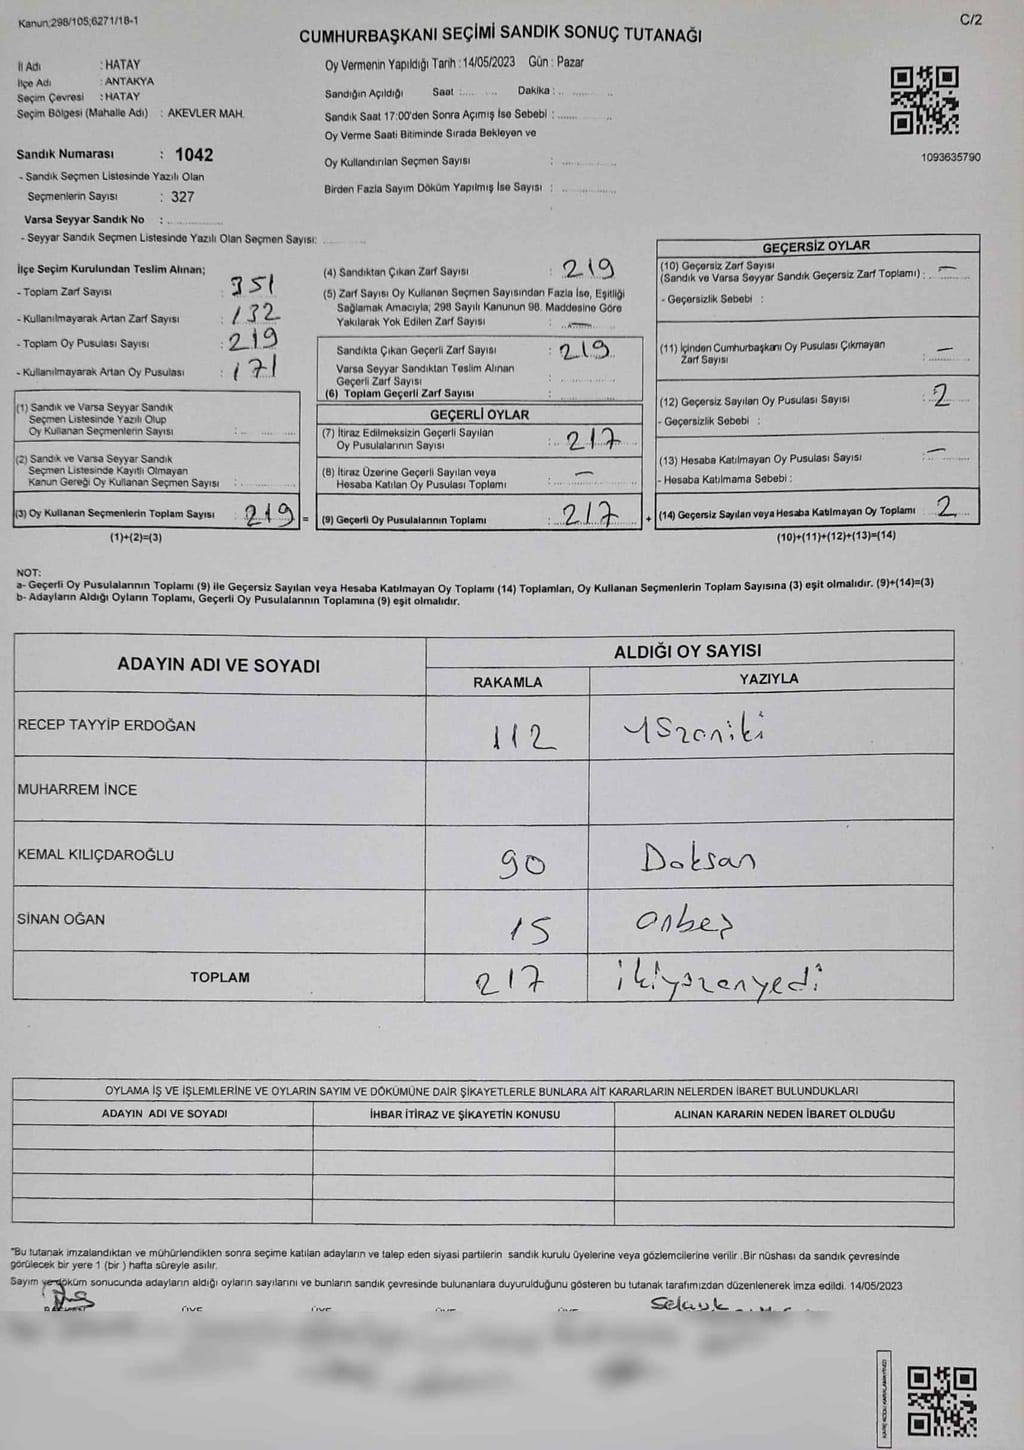 Kanun;298/105;6271/18-1
C/2
CUMHURBAŞKANI SEÇİMİ SANDIK SONUÇ TUTANAĞI
İl Adı : HATAY
İlçe Adı : ANTAKYA
Seçim Çevresi : HATAY
Seçim Bölgesi (Mahalle Adı) : AKEVLER MAH.
Oy Vermenin Yapıldığı Tarih :14/05/2023 Gün : Pazar
Sandığın Açıldığı Saat : Dakika :
Sandık Saat 17:00'den Sonra Açımış İse Sebebi :
Oy Verme Saati Bitiminde Sırada Bekleyen ve
Oy Kullandırılan Seçmen Sayısı :
Birden Fazla Sayım Döküm Yapılmış İse Sayısı :
1093635790
Sandık Numarası : 1042
- Sandık Seçmen Listesinde Yazılı Olan
Seçmenlerin Sayısı : 327
Varsa Seyyar Sandık No :
- Seyyar Sandık Seçmen Listesinde Yazılı Olan Seçmen Sayısı:
İlçe Seçim Kurulundan Teslim Alınan;
- Toplam Zarf Sayısı : 351
- Kullanılmayarak Artan Zarf Sayısı : 132
- Toplam Oy Pusulası Sayısı : 219
- Kullanılmayarak Artan Oy Pusulası : 171
(1) Sandık ve Varsa Seyyar Sandık
Seçmen Listesinde Yazılı Olup
Oy Kullanan Seçmenlerin Sayısı :
(2) Sandık ve Varsa Seyyar Sandık
Seçmen Listesinde Kayıtlı Olmayan
Kanun Gereği Oy Kullanan Seçmen Sayısı :
(3) Oy Kullanan Seçmenlerin Toplam Sayısı : 219 =
(1)+(2)=(3)
(4) Sandıktan Çıkan Zarf Sayısı : 219
(5) Zarf Sayısı Oy Kullanan Seçmen Sayısından Fazla İse, Eşitliği
Sağlamak Amacıyla; 298 Sayılı Kanunun 98. Maddesine Göre
Yakılarak Yok Edilen Zarf Sayısı : —
Sandıkta Çıkan Geçerli Zarf Sayısı : 219
Varsa Seyyar Sandıktan Teslim Alınan
Geçerli Zarf Sayısı :
(6) Toplam Geçerli Zarf Sayısı :
GEÇERLİ OYLAR
(7) İtiraz Edilmeksizin Geçerli Sayılan
Oy Pusulalarının Sayısı : 217
(8) İtiraz Üzerine Geçerli Sayılan veya —
Hesaba Katılan Oy Pusulası Toplamı :
(9) Geçerli Oy Pusulalarının Toplamı : 217 +
GEÇERSİZ OYLAR
(10) Geçersiz Zarf Sayısı
(Sandık ve Varsa Seyyar Sandık Geçersiz Zarf Toplamı) : —
- Geçersizlik Sebebi :
(11) İçinden Cumhurbaşkanı Oy Pusulası Çıkmayan
Zarf Sayısı : —
(12) Geçersiz Sayılan Oy Pusulası Sayısı : 2
- Geçersizlik Sebebi :
(13) Hesaba Katılmayan Oy Pusulası Sayısı : —
- Hesaba Katılmama Sebebi :
(14) Geçersiz Sayılan veya Hesaba Katılmayan Oy Toplamı 2
(10)+(11)+(12)+(13)=(14)
NOT:
a- Geçerli Oy Pusulalarının Toplamı (9) ile Geçersiz Sayılan veya Hesaba Katılmayan Oy Toplamı (14) Toplamları, Oy Kullanan Seçmenlerin Toplam Sayısına (3) eşit olmalıdır. (9)+(14)=(3)
b- Adayların Aldığı Oyların Toplamı, Geçerli Oy Pusulalarının Toplamına (9) eşit olmalıdır.
ADAYIN ADI VE SOYADI
ALDIĞI OY SAYISI
RAKAMLA YAZIYLA
RECEP TAYYİP ERDOĞAN 112 yüzoniki
MUHARREM İNCE
KEMAL KILIÇDAROĞLU 90 Doksan
SİNAN OĞAN 15 onbeş
TOPLAM 217 ikiyüzonyedi
OYLAMA İŞ VE İŞLEMLERİNE VE OYLARIN SAYIM VE DÖKÜMÜNE DAİR ŞİKAYETLERLE BUNLARA AİT KARARLARIN NELERDEN İBARET BULUNDUKLARI
ADAYIN ADI VE SOYADI İHBAR İTİRAZ VE ŞİKAYETİN KONUSU ALINAN KARARIN NEDEN İBARET OLDUĞU
"Bu tutanak imzalandıktan ve mühürlendikten sonra seçime katılan adayların ve talep eden siyasi partilerin sandık kurulu üyelerine veya gözlemcilerine verilir .Bir nüshası da sandık çevresinde
görülecek bir yere 1 (bir ) hafta süreyle asılır.
Sayım ve döküm sonucunda adayların aldığı oyların sayılarını ve bunların sandık çevresinde bulunanlara duyurulduğunu gösteren bu tutanak tarafımızdan düzenlenerek imza edildi. 14/05/2023
Selçuk